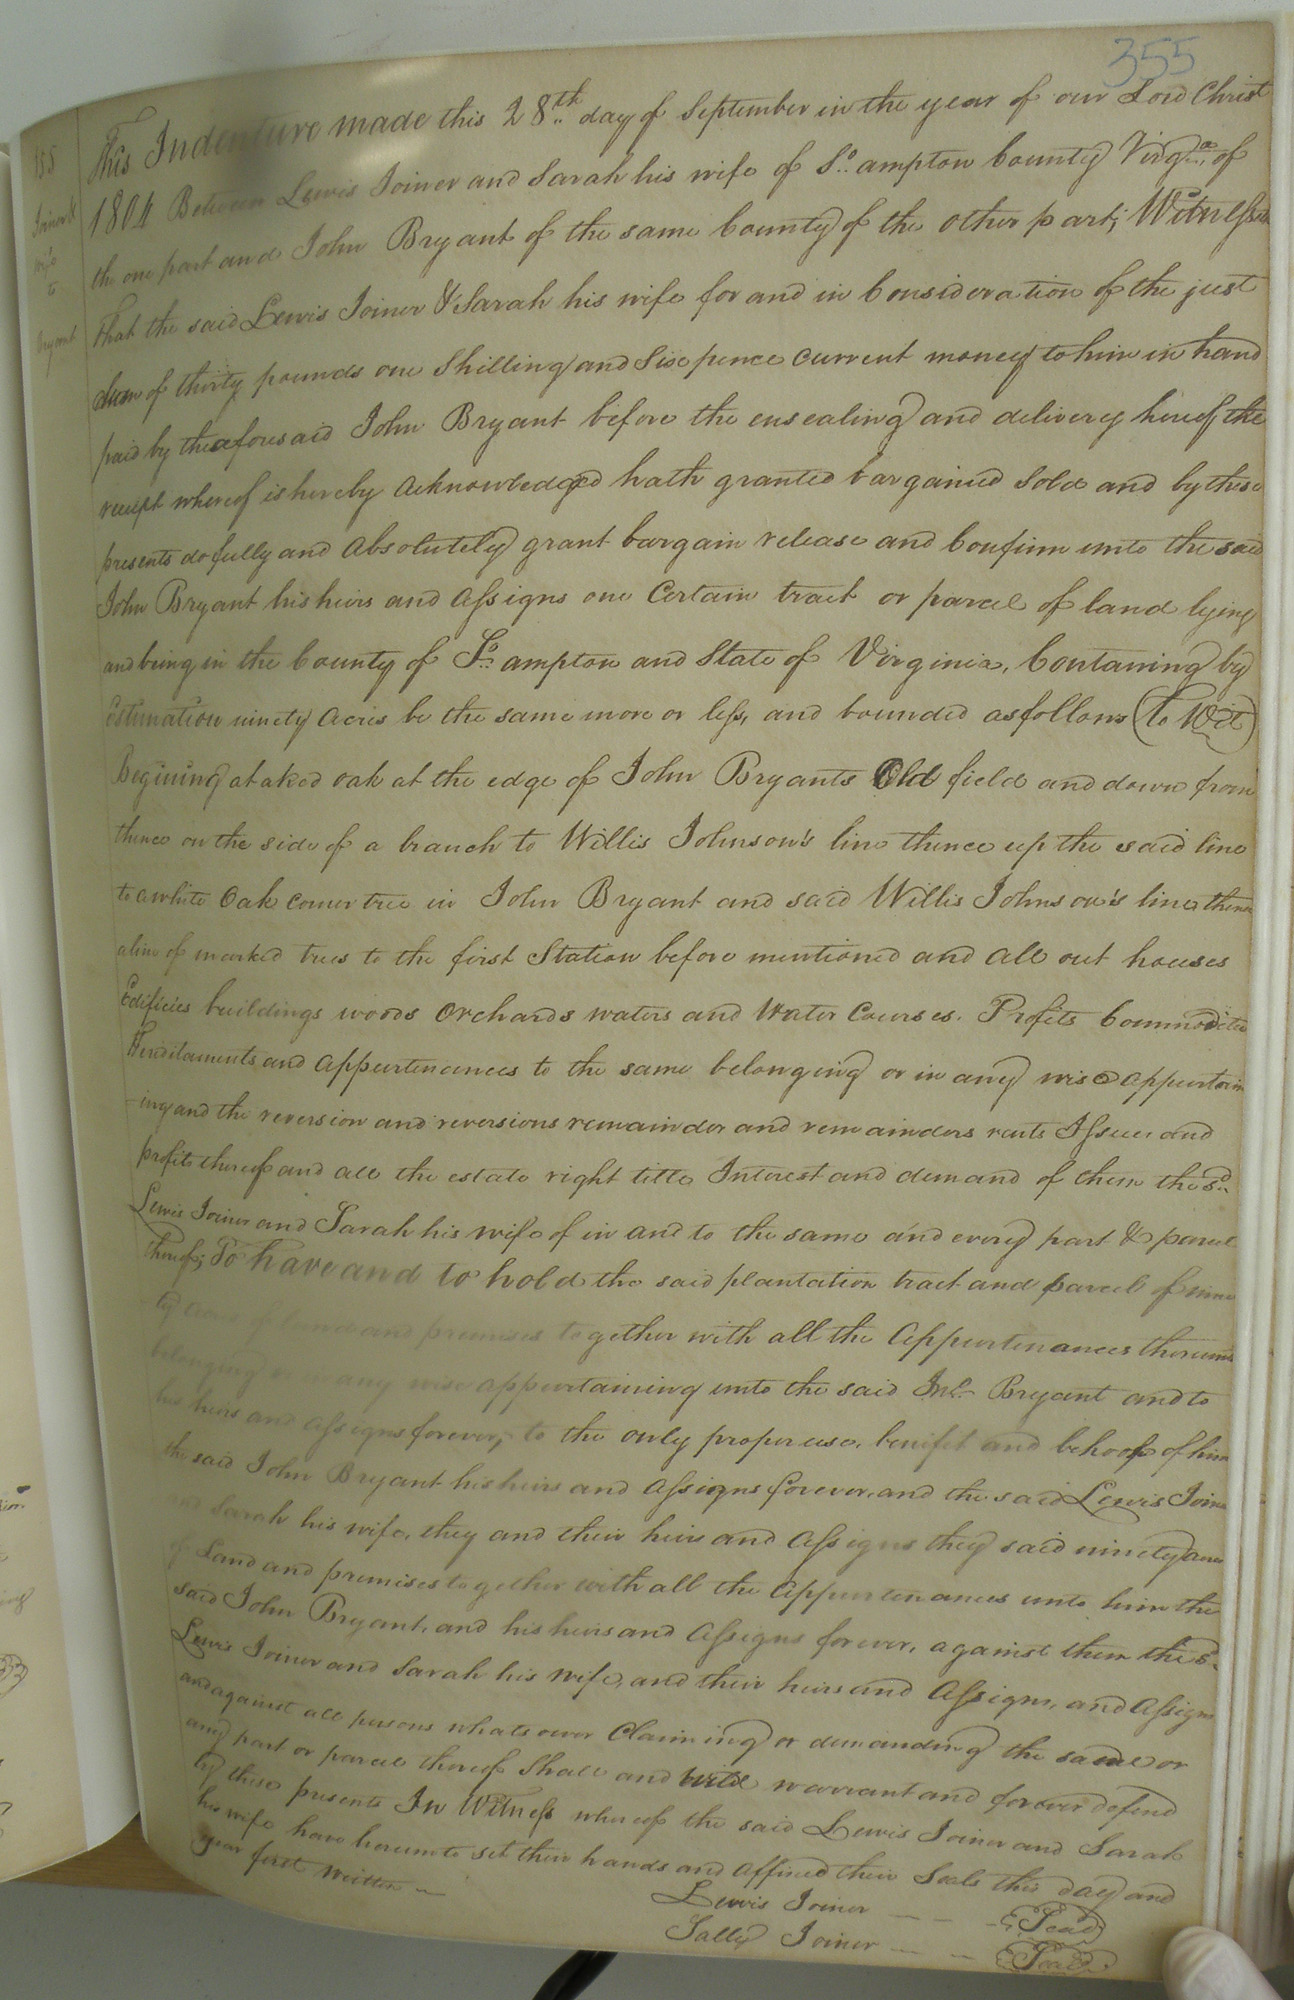 355
155
Joiner &
wife
to
Bryant
This Indenture made this 28th day of September in the year of our Lord Christ
1804 Between Lewis Joiner and Sarah his wife of So. ampton County Virga. of
the one part and John Bryant of the same County of the other part; Witnesseth
that the said Lewis Joiner & Sarah his wife for and in Consideration of the just
sum of thirty pounds one Shilling and Six pence current money to him in hand
paid by the aforesaid John Bryant before the ensealing and delivery hereof, the
receipt whereof is hereby Acknowledged hath granted bargained Sold and by these
presents do fully and Absolutely grant bargain release and Confirm unto the said
John Bryant his heirs and Assigns one Certain tract or parcel of land lying
and being in the County of So. ampton and State of Virginia, Containing by
Estimation ninety Acres be the same more or less, and bounded as follows (to Wit)
Begining at a Red oak at the edge of John Bryants Old field and down from
thence on the side of a branch to Willis Johnson's line thence up the said line
to a white Oak corner tree in John Bryant and said Willis Johnson's line thence
a line of marked trees to the first Station before mentioned and All out houses
Edificies buildings woods Orchards waters and Water Courses. Profits Commodities
Heriditaments and Appurtenances to the same belonging or in any wise appertain
-ing and the reversion and reversions remainder and remainders rents Issues and
profits thereof and all the estate right title Interest and demand of them the sd.
Lewis Joiner and Sarah his wife of in and to the same and every part & parcel
thereof; To have and to hold the said plantation tract and parcel of nine
ty acres of land and premises together with all the Appurtenances thereunto
belonging or in any wise appertaining unto the said Jno. Bryant and to
his heirs and Assigns forever, to the only proper use, benifit and behoof of him
the said John Bryant his heirs and Assigns forever, and the said Lewis Joiner
and Sarah his wife, they and their heirs and Assigns they said ninety acres
of Land and premises together with all the Appurtenances unto him the
said John Bryant, and his heirs and Assigns forever, against them the sd.
Lewis Joiner and Sarah his wife, and their heirs and Assigns, and Assigns
and against all persons whatsoever Claiming or demanding the same or
any part or parcel thereof Shall and will warrant and forever defend
by these presents In Witness whereof the said Lewis Joiner and Sarah
his wife have hereunto set their hands and affixed their Seals this day and
year first written
Lewis Joiner (Seal)
Sally Joiner (Seal)